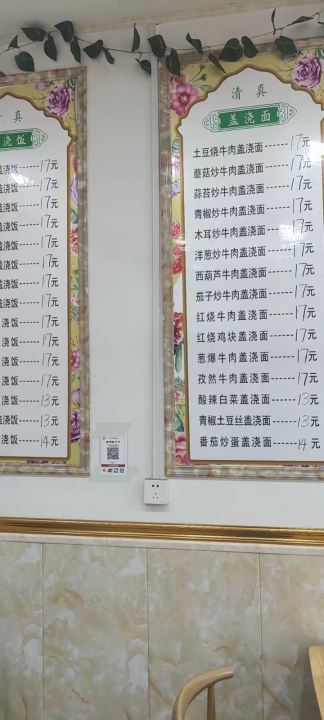 真
浇饭
盖浇饭------17元
盖浇饭------17元
盖浇饭------17元
盖浇饭------17元
盖浇饭------17元
盖浇饭------17元
盖浇饭------17元
盖浇饭------17元
浇饭------17元
浇饭------17元
浇饭------17元
浇饭------17元
浇饭------13元
盖浇饭------13元
浇饭------14元
清真
盖浇面
土豆烧牛肉盖浇面-----17元
蘑菇炒牛肉盖浇面-----17元
蒜苔炒牛肉盖浇面-----17元
青椒炒牛肉盖浇面-----17元
木耳炒牛肉盖浇面-----17元
洋葱炒牛肉盖浇面-----17元
西葫芦牛肉盖浇面-----17元
茄子炒牛肉盖浇面-----17元
红烧牛肉盖浇面-------17元
红烧鸡块盖浇面-------17元
葱爆牛肉盖浇面-------17元
孜然牛肉盖浇面-------17元
酸辣白菜盖浇面-------13元
青椒土豆丝盖浇面-----13元
番茄炒蛋盖浇面-------14元